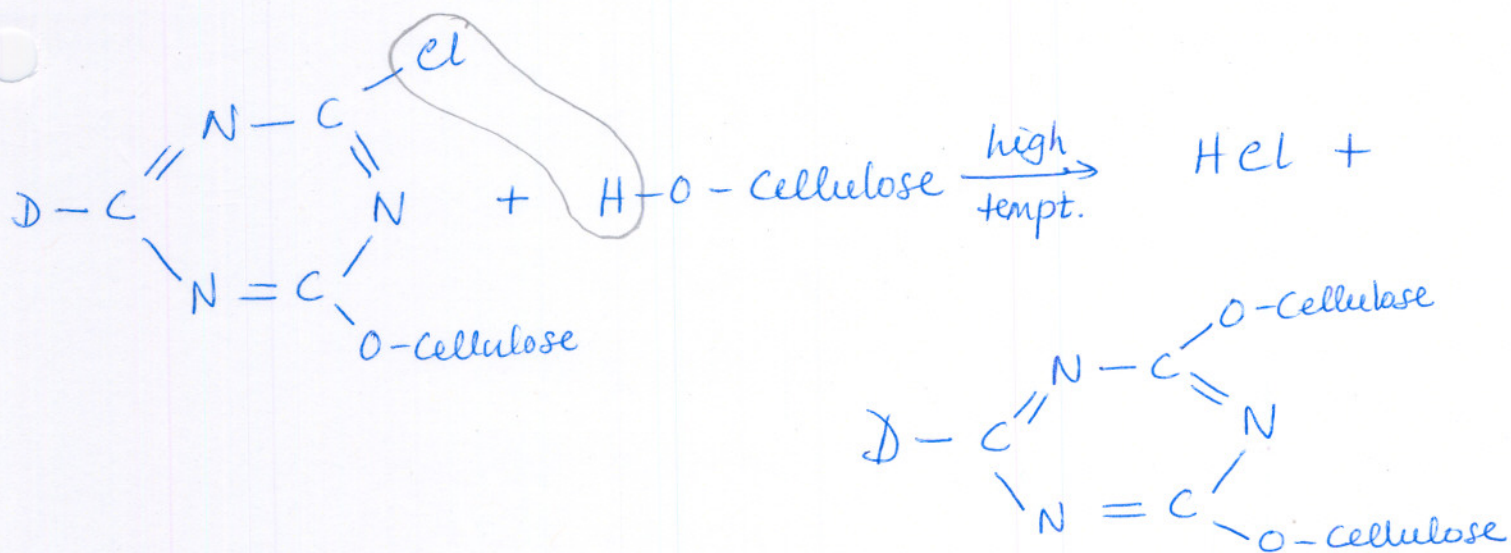 Cl
N — C
D — C N + H — O — Cellulose high tempt. → HCl +
N = C
O - Cellulose
O - Cellulose
N — C
D — C N
N = C
O - Cellulose